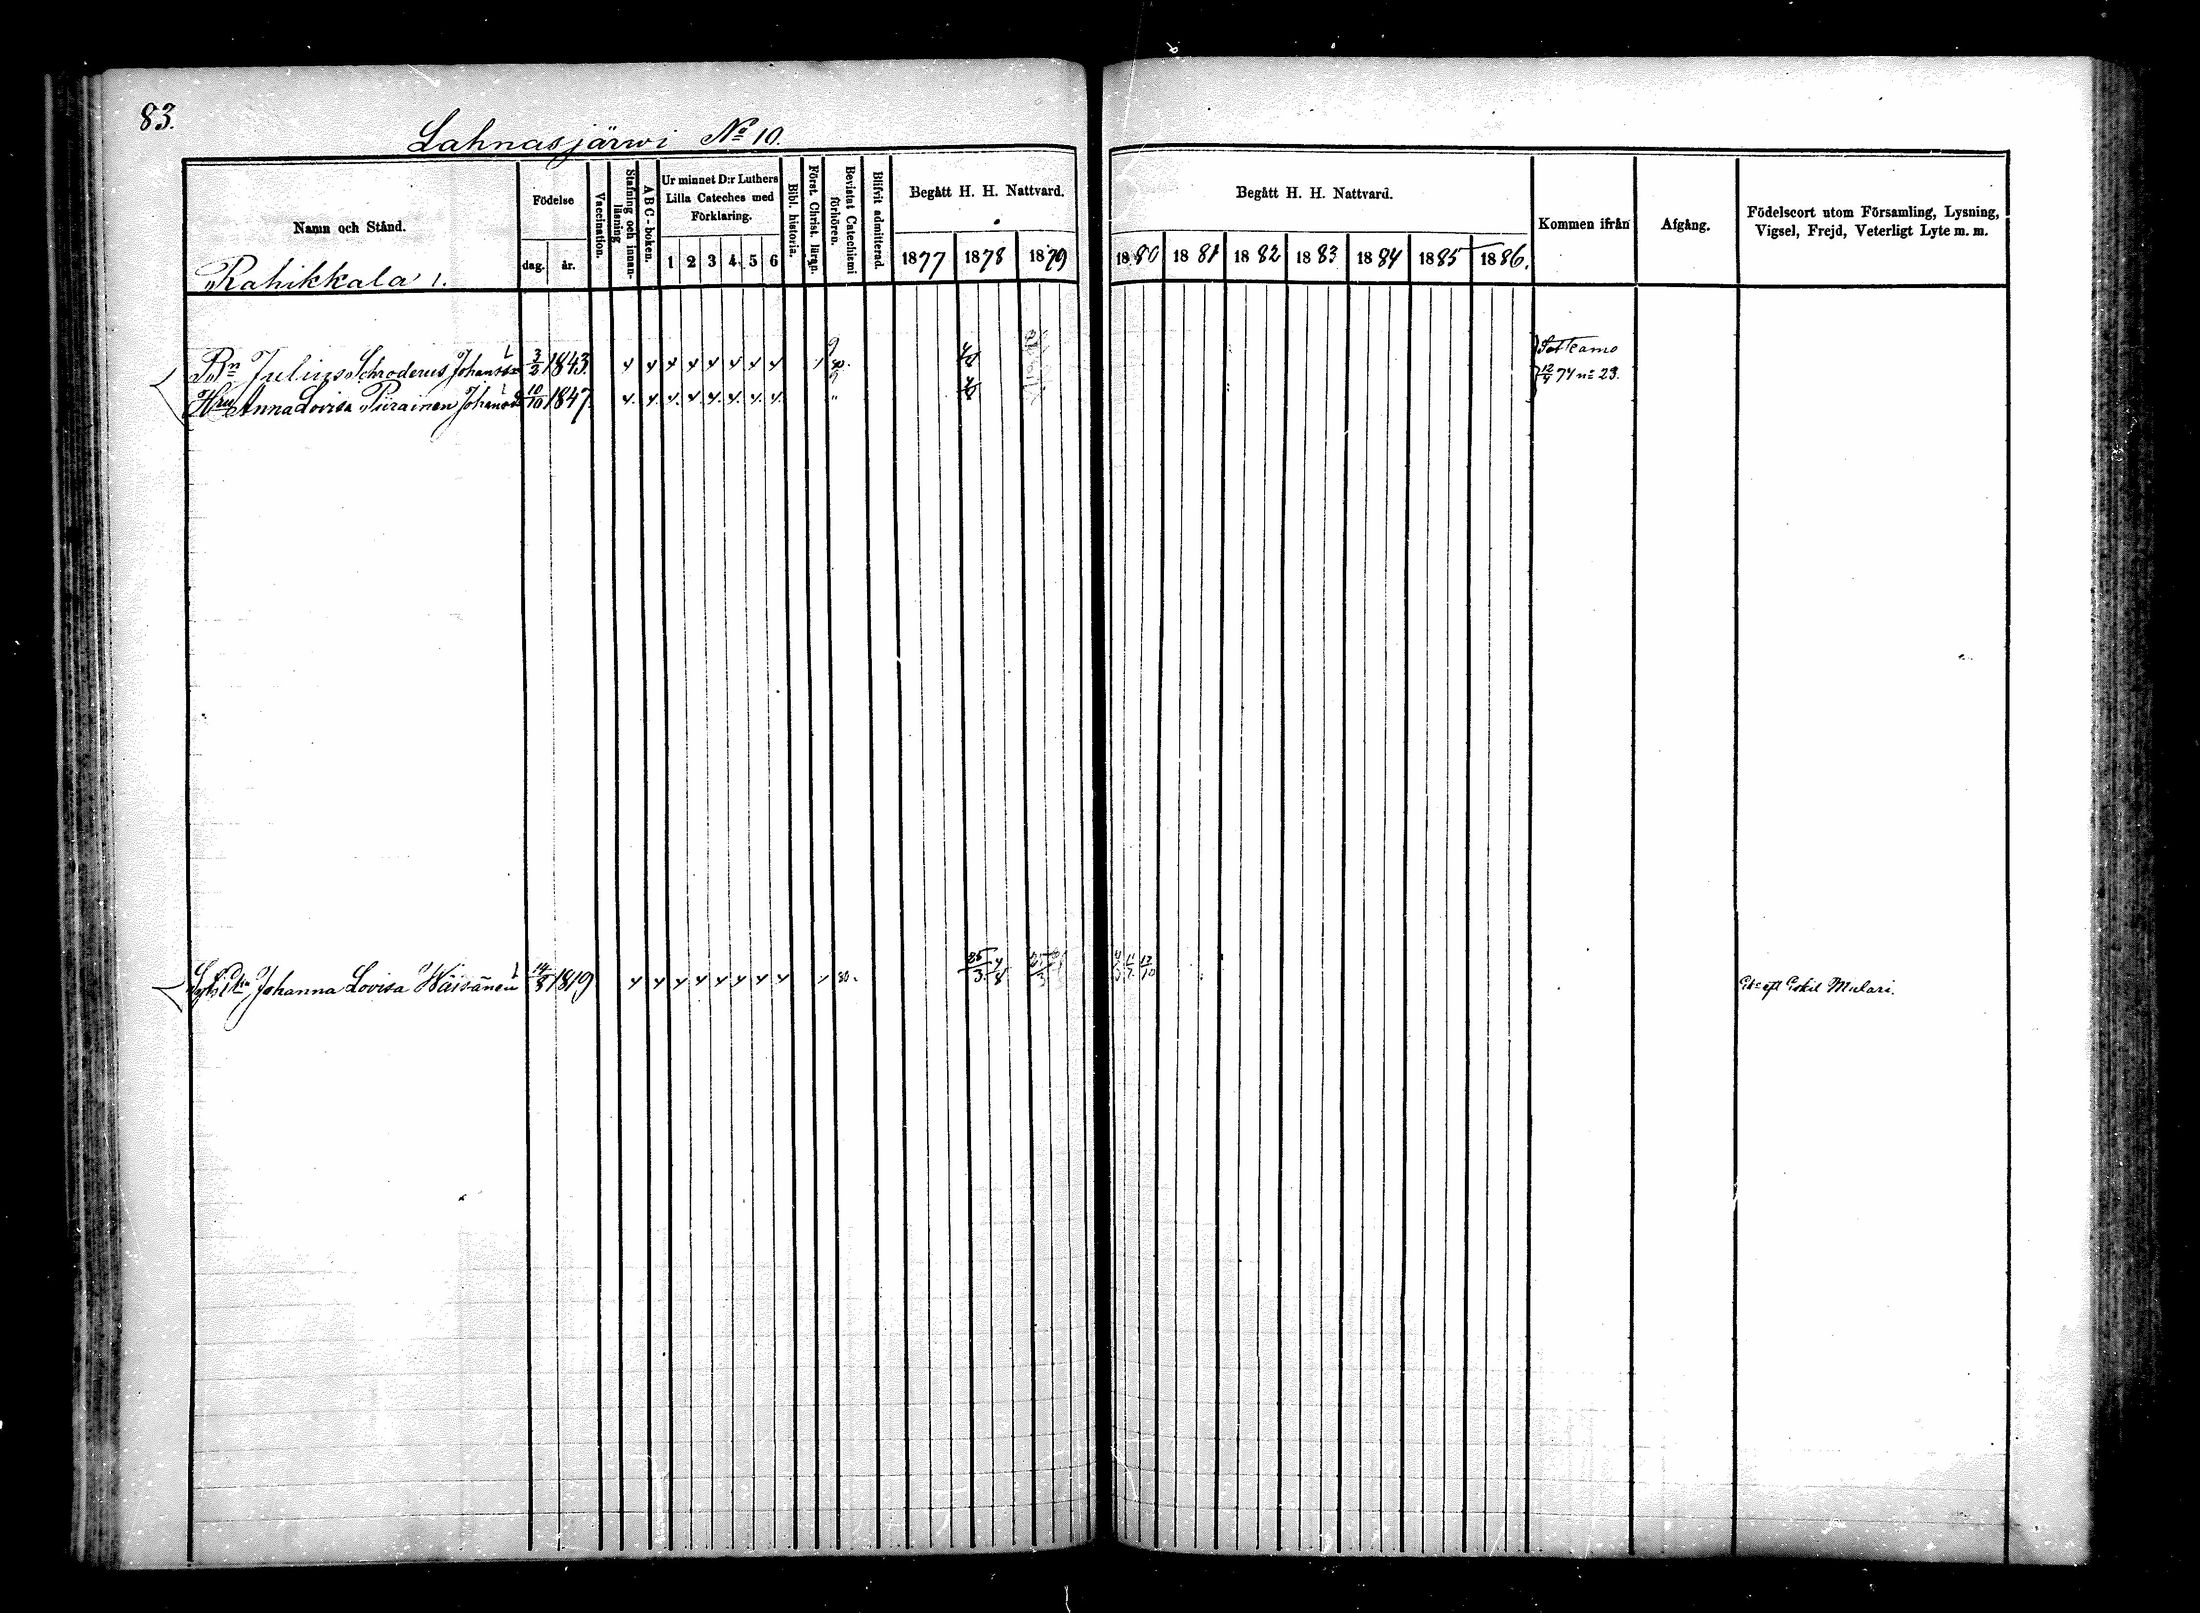 83.
Lahnasjärwi No 10.
Namn och Stånd.
Rahikkala 1.
Födelse
dag. år.
Vaccination.
Stafning och innanläsning
ABC-boken.
Ur minnet D:r Luthers
Lilla Cateches med
Förklaring.
1 2 3 4 5 6
Bibl. historia.
Först. Christ. läran.
Bevistat Catechismi förhören.
Blifvit admitterad.
Begått H. H. Nattvard.
1877 1878 1879
Begått H. H. Nattvard.
1880 1881 1882 1883 1884 1885 1886.
Kommen ifrån
Afgång.
Födelseort utom Församling, Lysning,
Vigsel, Frejd, Veterligt Lyte m. m.
Bn Julius Schroderus Johansson 3/2 1843.
Sotkamo
12/4 74 no 23.
Hru Anna Lovisa Piirainen Johansd 10/10 1847.
Johanna Lovisa Wäisänen 14/8 1819 80.
25/3 4/8
Eskil Mulari.